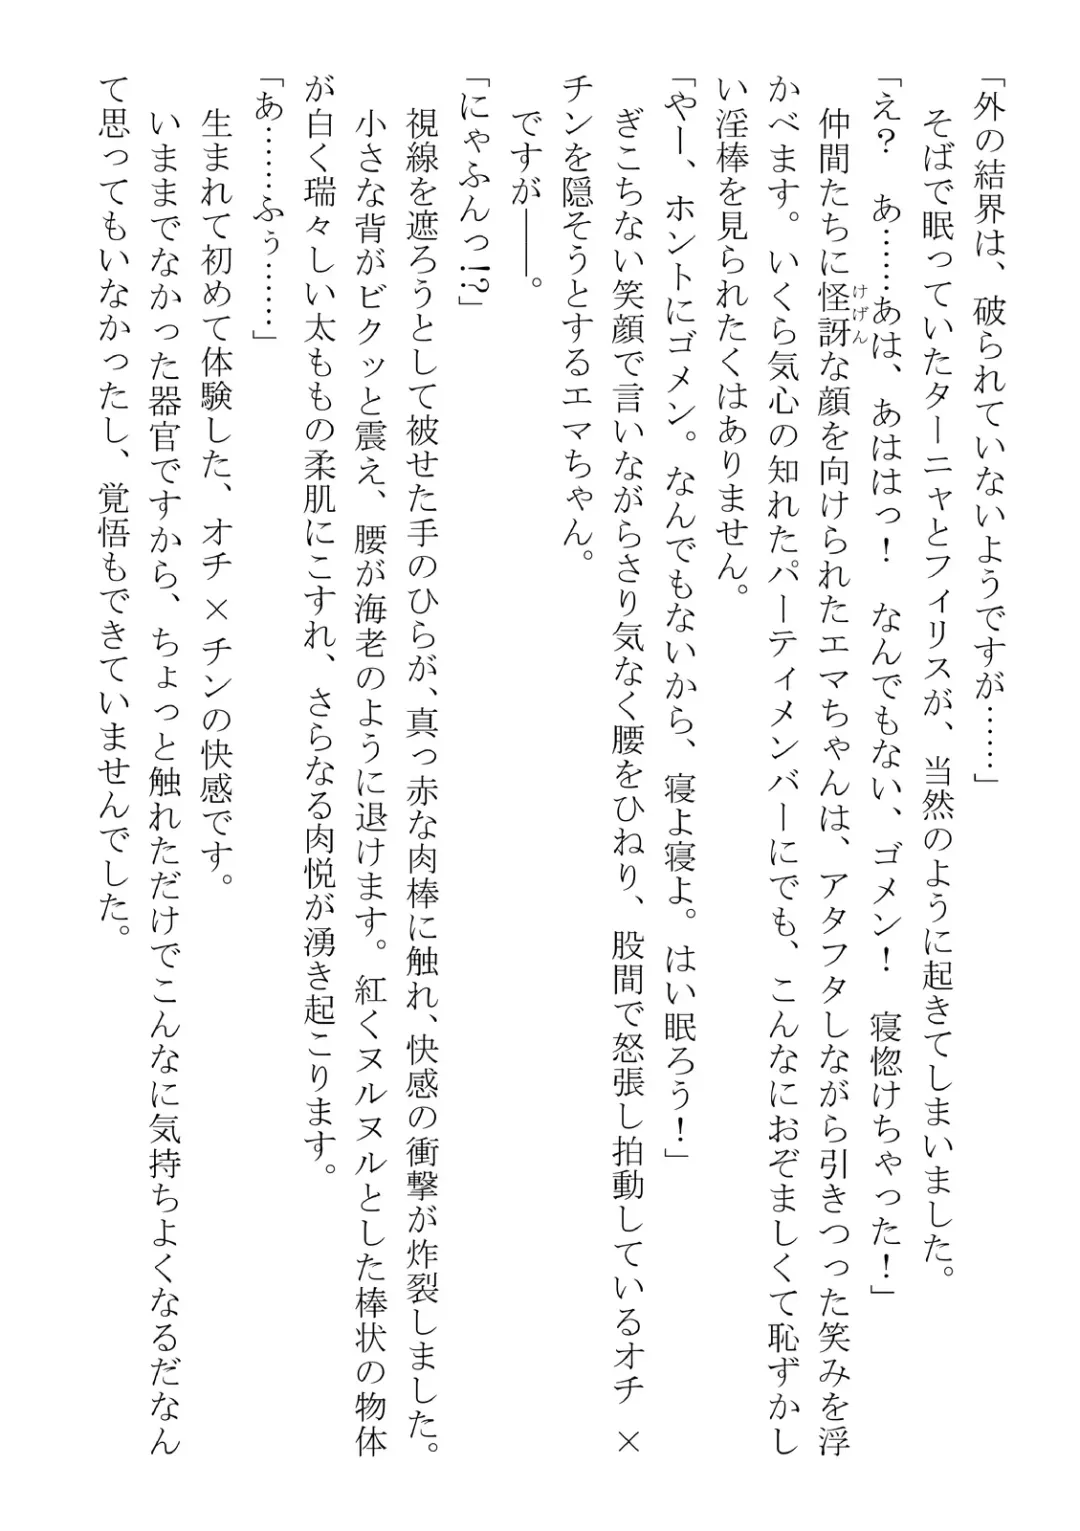 「外の結界は、破られていないようですが……」
そばで眠っていたターニャとフィリスが、当然のように起きてしまいました。
「え？　あ……あは、あははっ！　なんでもない、ゴメン！　寝惚けちゃった！」
仲間たちに怪訝な顔を向けられたエマちゃんは、アタフタしながら引きつった笑みを浮
かべます。いくら気心の知れたパーティメンバーにでも、こんなにおぞましくて恥ずかし
い淫棒を見られたくはありません。
「やー、ホントにゴメン。なんでもないから、寝よ寝よ。はい眠ろう！」
ぎこちない笑顔で言いながらさり気なく腰をひねり、股間で怒張し拍動しているオチ×
チンを隠そうとするエマちゃん。
ですが――。
「にゃふんっ!?」
視線を遮ろうとして被せた手のひらが、真っ赤な肉棒に触れ、快感の衝撃が炸裂しました。
小さな背がビクッと震え、腰が海老のように退けます。紅くヌルヌルとした棒状の物体
が白く瑞々しい太ももの柔肌にこすれ、さらなる肉悦が湧き起こります。
「あ……ふぅ……」
生まれて初めて体験した、オチ×チンの快感です。
いままでなかった器官ですから、ちょっと触れただけでこんなに気持ちよくなるだなん
て思ってもいなかったし、覚悟もできていませんでした。
けげん